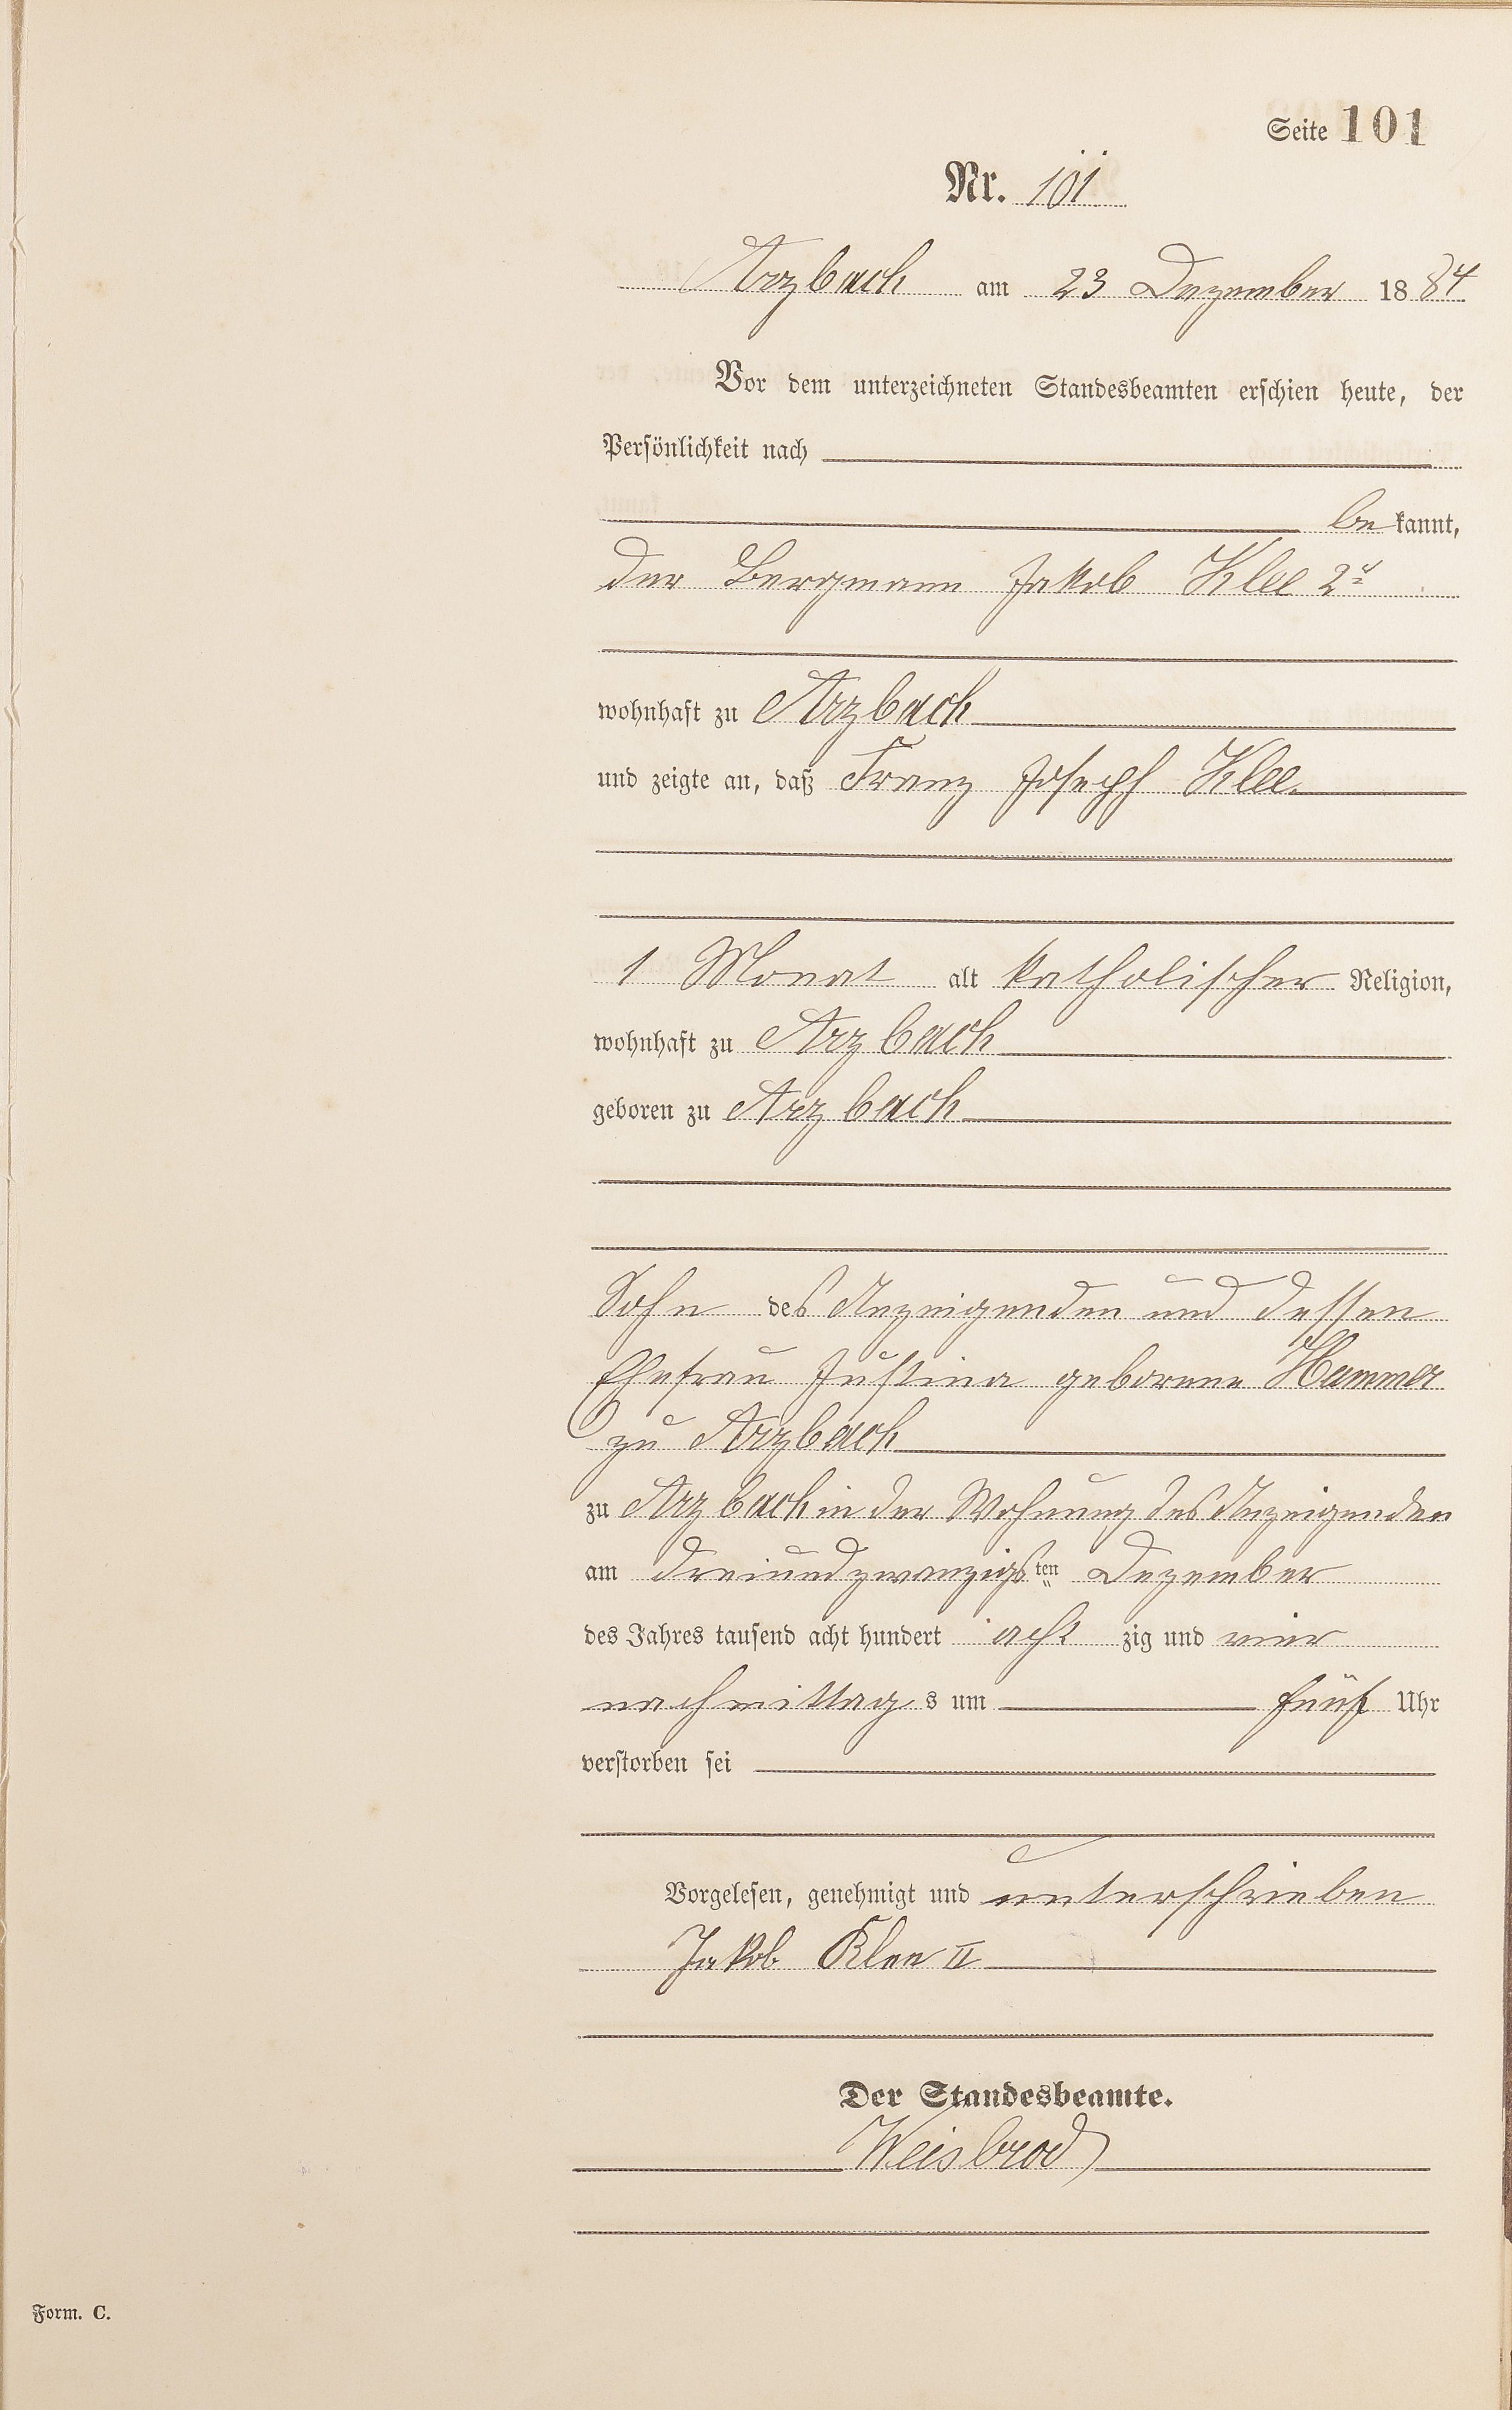 Seite 101
Nr. 101
Arzbach am 23 Dezember 1884
Vor dem unterzeichneten Standesbeamten erschien heute, der
Persönlichkeit nach
bekannt,
der Bergmann Jakob Klee 2r
wohnhaft zu Arzbach
und zeigte an, daß Franz Joseph Klee
1 Monat alt katholischer Religion,
wohnhaft zu Arzbach
geboren zu Arzbach
Sohn des Anzeigenden und dessen
Ehefrau Justina geborene Hammer
zu Arzbach
zu Arzbach in der Wohnung des Anzeigenden
am dreiundzwanzigsten Dezember
des Jahres tausend acht hundert achtzig und vier
nachmittags um fünf Uhr
verstorben sei
Vorgelesen, genehmigt und unterschrieben
Jakob Klee II
Der Standesbeamte.
Weisbrod
Form. C.